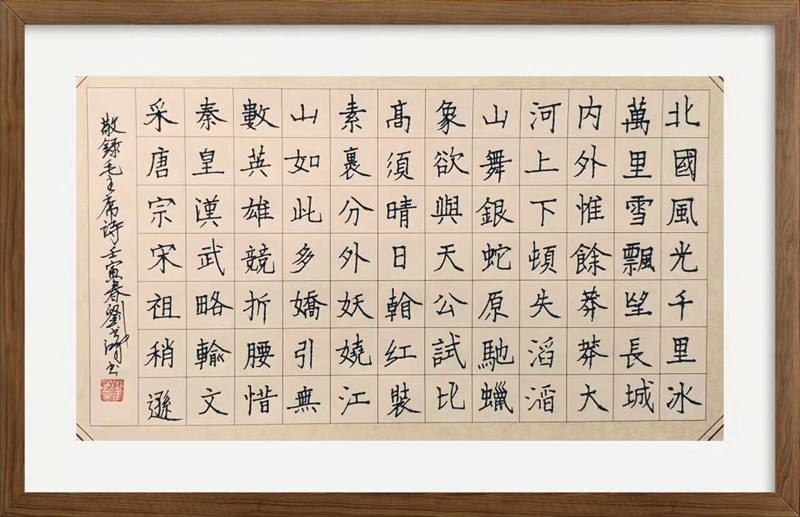 北國風光千里冰
萬里雪飄望長城
内外惟餘莽莽大
河上下頓失滔滔
山舞銀蛇原馳蠟
象欲與天公試比
高須晴日看紅裝
素裹分外妖嬈江
山如此多嬌引無
數英雄競折腰惜
秦皇漢武略輸文
采唐宗宋祖稍遜
敬錄毛主席詩壬寅春劉書